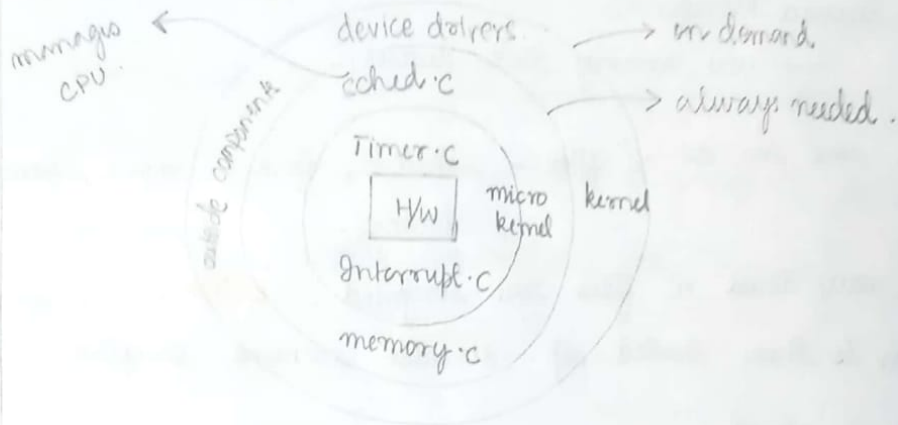 manages
CPU.
device drivers.
sched.c
on demand.
always needed.
outside components
Timer.c
H/W
micro
kernel
kernel
Interrupt.c
memory.c